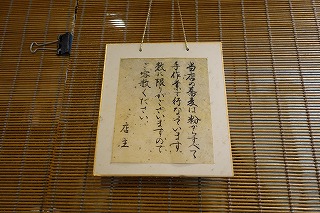 当店の蕎麦は粉からすべて
手作業で行なっています。
数に限りがございますので
ご容赦ください。
店主